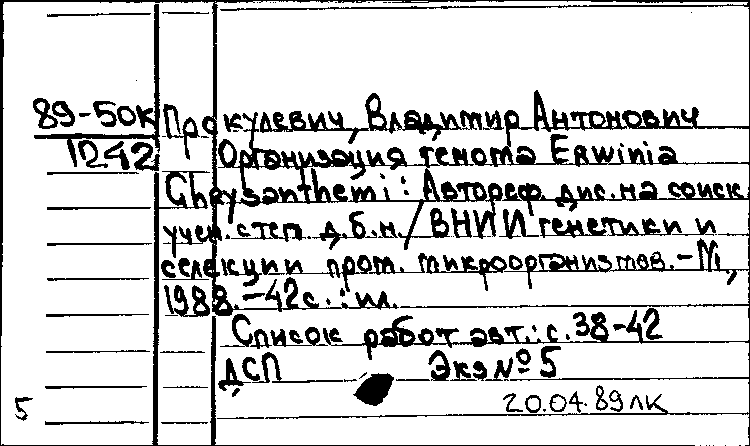 89-50к Прокулевич, Владимир Антонович
1242 Организация генома Erwinia
Chrysanthemi : Автореф. дис. на соиск.
учен. степ. д.б.н. / ВНИИ генетики и
селекции пром. микроорганизмов. - М.,
1988. - 42с. : ил.
Список работ авт.: с. 38-42
ДСП Экз № 5
5 20.04.89 ЛК